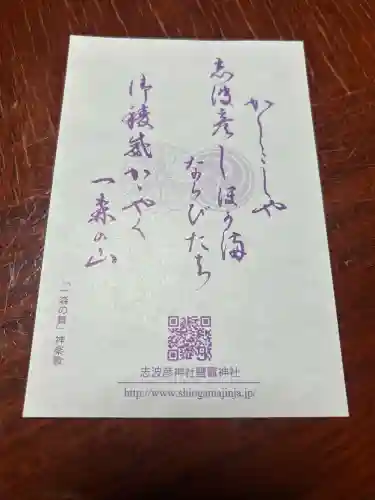 かしこしや
志波彦しほがま
ならびたち
御稜威かゞやく
一森の山
「一森の賛」神楽歌
志波彦神社鹽竈神社
http://www.shiogamajinja.jp/